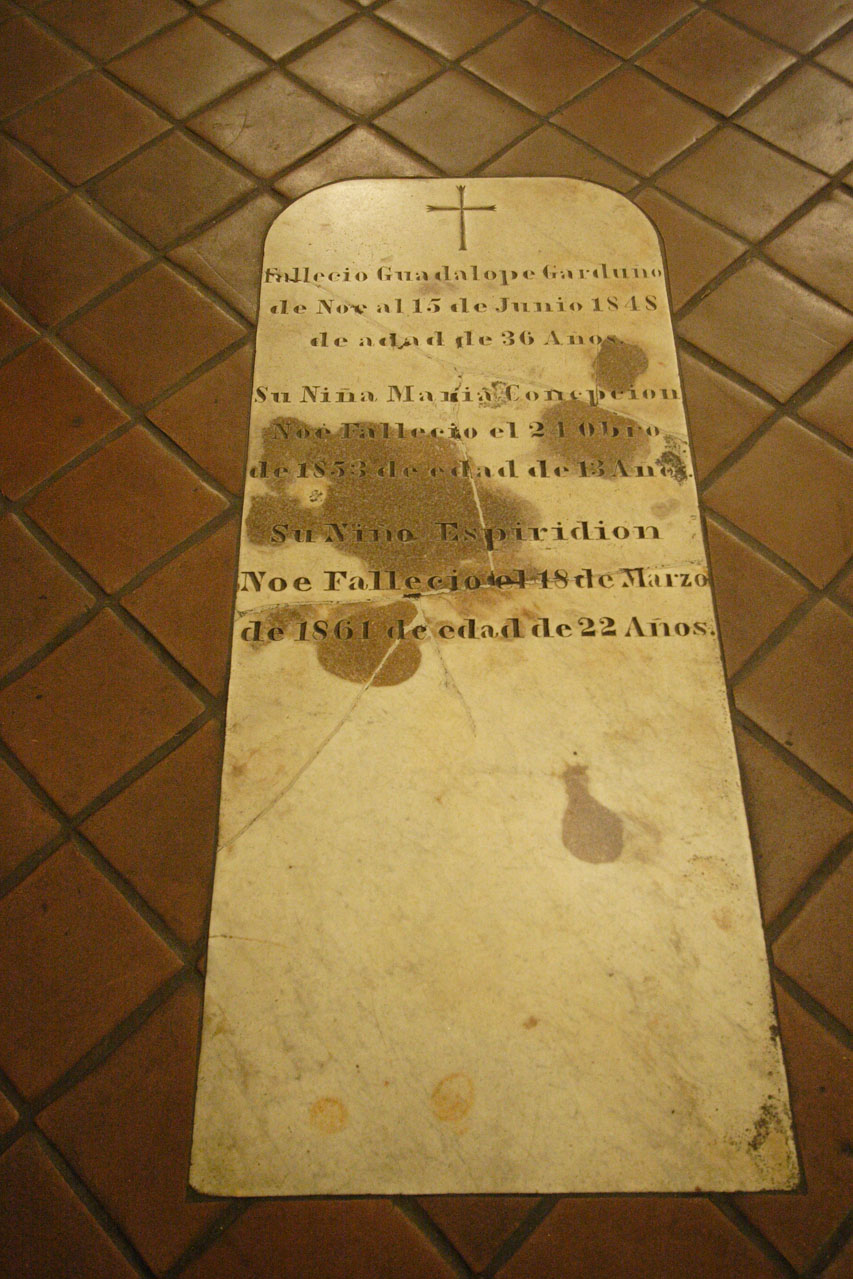 Fallecio Guadalope Garduño
de Noe al 15 de Junio 1848
de adad de 36 Años.
Su Niña Maria Concepcion
Noe Fallecio el 24 Obro
de 1853 de edad de 13 Años.
Su Niño Espiridion
Noe Fallecio el 18 de Marzo
de 1861 de edad de 22 Años.